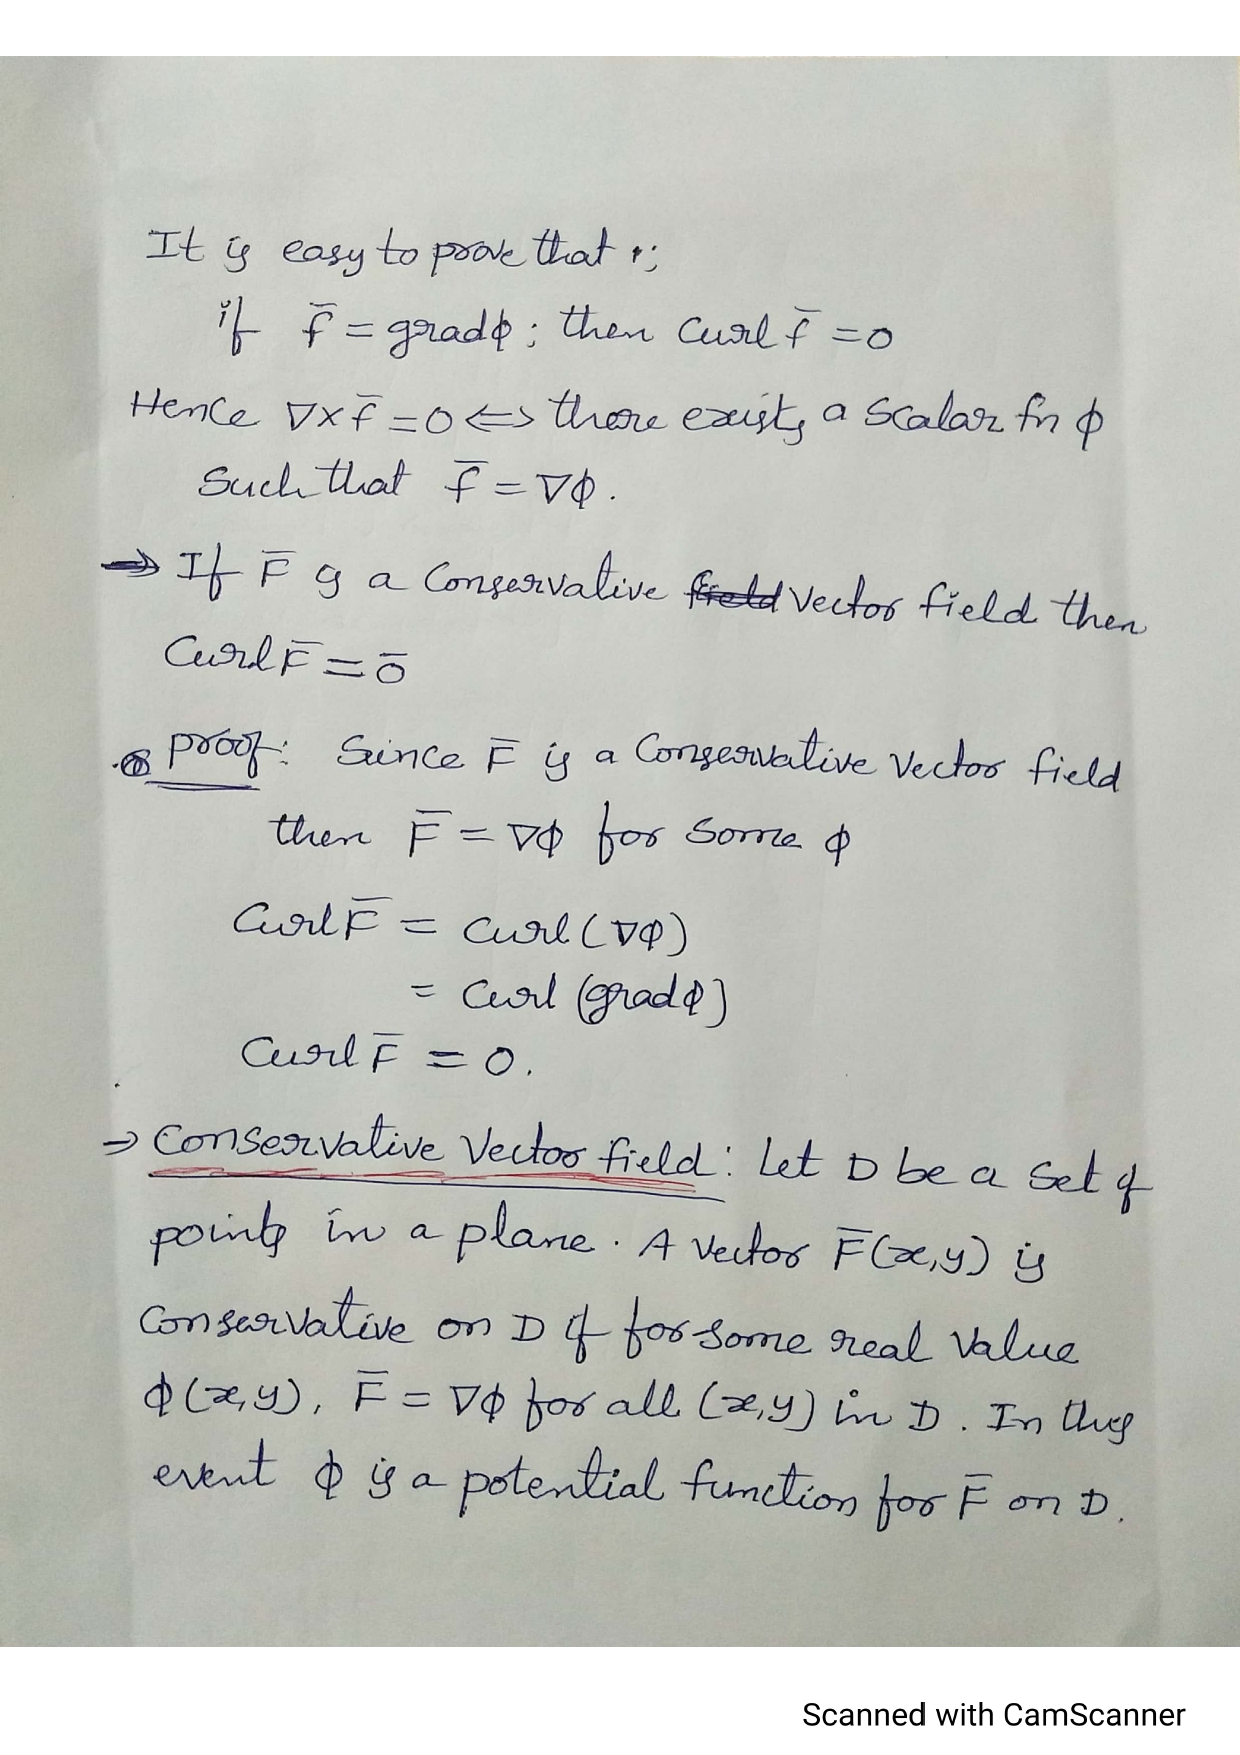 It is easy to prove that ;
if f̄ = gradϕ ; then Curl f̄ = 0
Hence ∇×f̄ = 0 ⇔ there exists a Scalar fn ϕ
Such that f̄ = ∇ϕ .
⇒ If F̄ is a Conservative Vector field then
Curl F̄ = ō
proof: Since F̄ is a Conservative Vector field
then F̄ = ∇ϕ for Some ϕ
Curl F̄ = Curl (∇ϕ)
= Curl (gradϕ)
Curl F̄ = 0.
⇒ Conservative Vector field : Let D be a Set of
points in a plane . A Vector F̄(x,y) is
Conservative on D if for some real Value
ϕ(x,y), F̄ = ∇ϕ for all (x,y) in D . In this
event ϕ is a potential function for F̄ on D.
Scanned with CamScanner